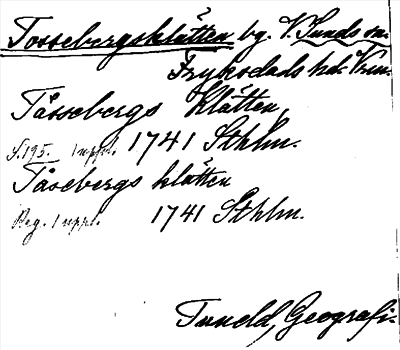 Tossebergsklätten bg. V. Sunds sn.
Fryksdals hd. Vrm.
Tåssebergs Klätten
S. 195. 1 uppl. 1741 Sthlm.
Tåsebergs klätten
Reg. 1 uppl. 1741 Sthlm.
Tuneld, Geografi.